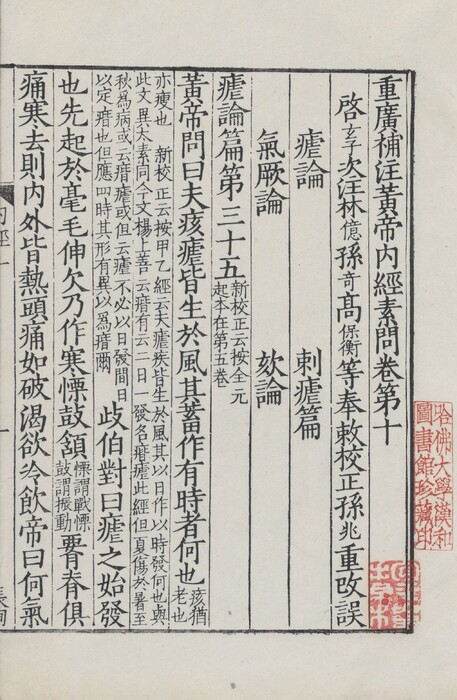 重廣補注黃帝內經素問卷第十
啓玄子次注林億孫奇高保衡等奉敕校正孫兆重改誤
瘧論 刺瘧篇
氣厥論 欬論
瘧論篇第三十五 新校正云按全元
起本在第五卷
黃帝問曰夫痎瘧皆生於風其蓄作有時者何也 痎猶
老也
亦瘦也 新校正云按甲乙經云夫瘧疾皆生於風其以日作以時發何也與
此文異太素同今文楊上善云痎有云二日一發名痎瘧此經但夏傷於暑至
秋爲病或云痎瘧或但云瘧不必以日發間日
以定痎也但應四時其形有異以爲痎爾
歧伯對曰瘧之始發
也先起於毫毛伸欠乃作寒慄鼓頷 慄謂戰慄
鼓謂振動
腰脊俱
痛寒去則內外皆熱頭痛如破渴欲冷飲帝曰何氣
哈佛大學漢和
圖書館珍藏印